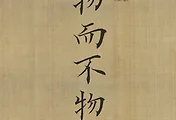 物而不物